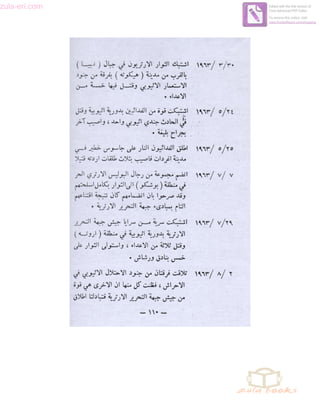 zula-eri.com
٣٠/ ٣/ ١٩٦٣ اشتبك الثوار الارتريون في جبال ( دبيسا )
بالقرب من مدينة ( هيكوته ) بفرقة من جنود
الاستعمار الاثيوبي وقتل فيها خمسة من
الاعداء ٠
٢٤/ ٥/ ١٩٦٣ اشتبكت قوة من الفدائيين بدورية اثيوبية وقتل
في الحادث جندي اثيوبي واحد ، واصيب آخر
بجراح بليغة ٠
٢٥/ ٥/ ١٩٦٣ اطلق الفدائيون النار على جاسوس خطير في
مدينة اغردات فاصيب بثلاث طلقات اردته قتيلا
٧/ ٧/ ١٩٦٣ انضم مجموعة من رجال البوليس الارتري الحر
في منطقة ( بوشكو ) الى الثوار بكامل اسلحتهم
وقد صرحوا بان انضمامهم كان نتيجة اقتناعهم
التام بمبادىء جبهة التحرير الارترية ٠
٢٩/ ٧/ ١٩٦٣ اشتبكت سرية من سرايا جيش جبهة التحرير
الارترية بدورية اثيوبية في منطقة ( اروته )
وقتل ثلاثة من الاعداء ، واستولى الثوار على
خمس بنادق ورشاش ٠
٢/ ٨/ ١٩٦٣ تلاقت فرقتان من جنود الاحتلال الاثيوبي في
الاحراش ، فظنت كل منها ان الاخرى هي قوة
من جيش جبهة التحرير الارترية فتبادلتا اطلاق
— ١١٠ —
asia books